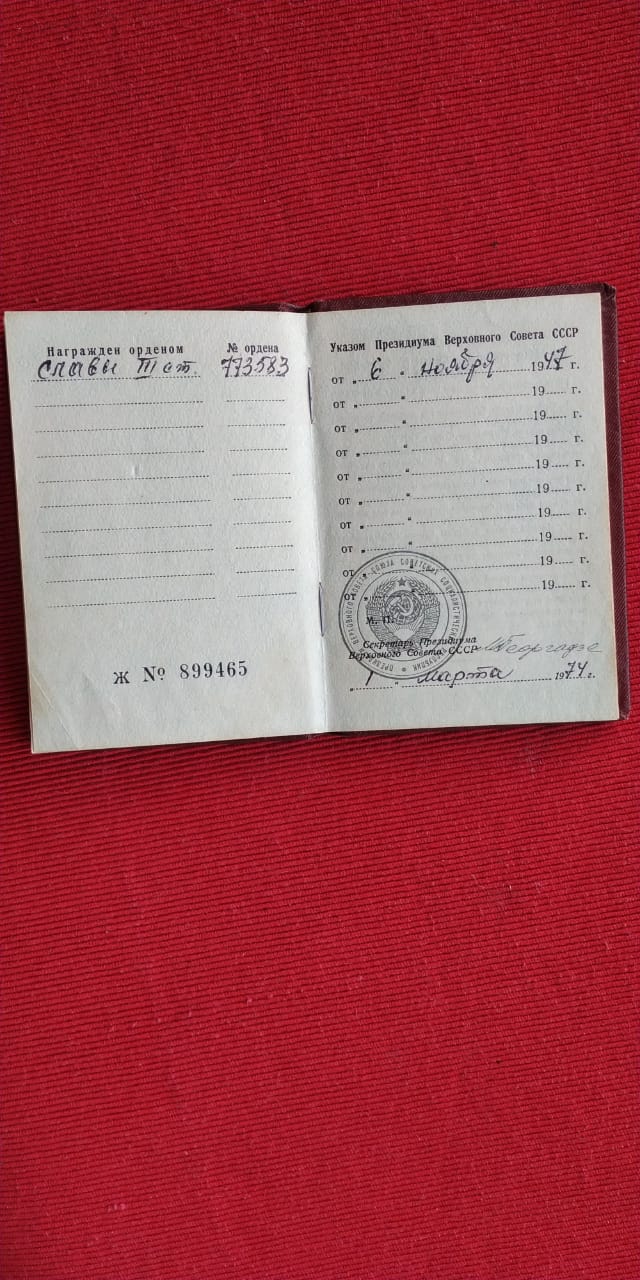 Награжден орденом № ордена
Славы III ст. 773583
Ж № 899465
Указом Президиума Верховного Совета СССР
от „ 6 “ ноября 1947 г.
от „ “ 19 г.
от „ “ 19 г.
от „ “ 19 г.
от „ “ 19 г.
от „ “ 19 г.
от „ “ 19 г.
от „ “ 19 г.
от „ “ 19 г.
от „ “ 19 г.
М. П.
Секретарь Президиума
Верховного Совета СССР МГеоргадзе
„ 1 “ марта 1974 г.